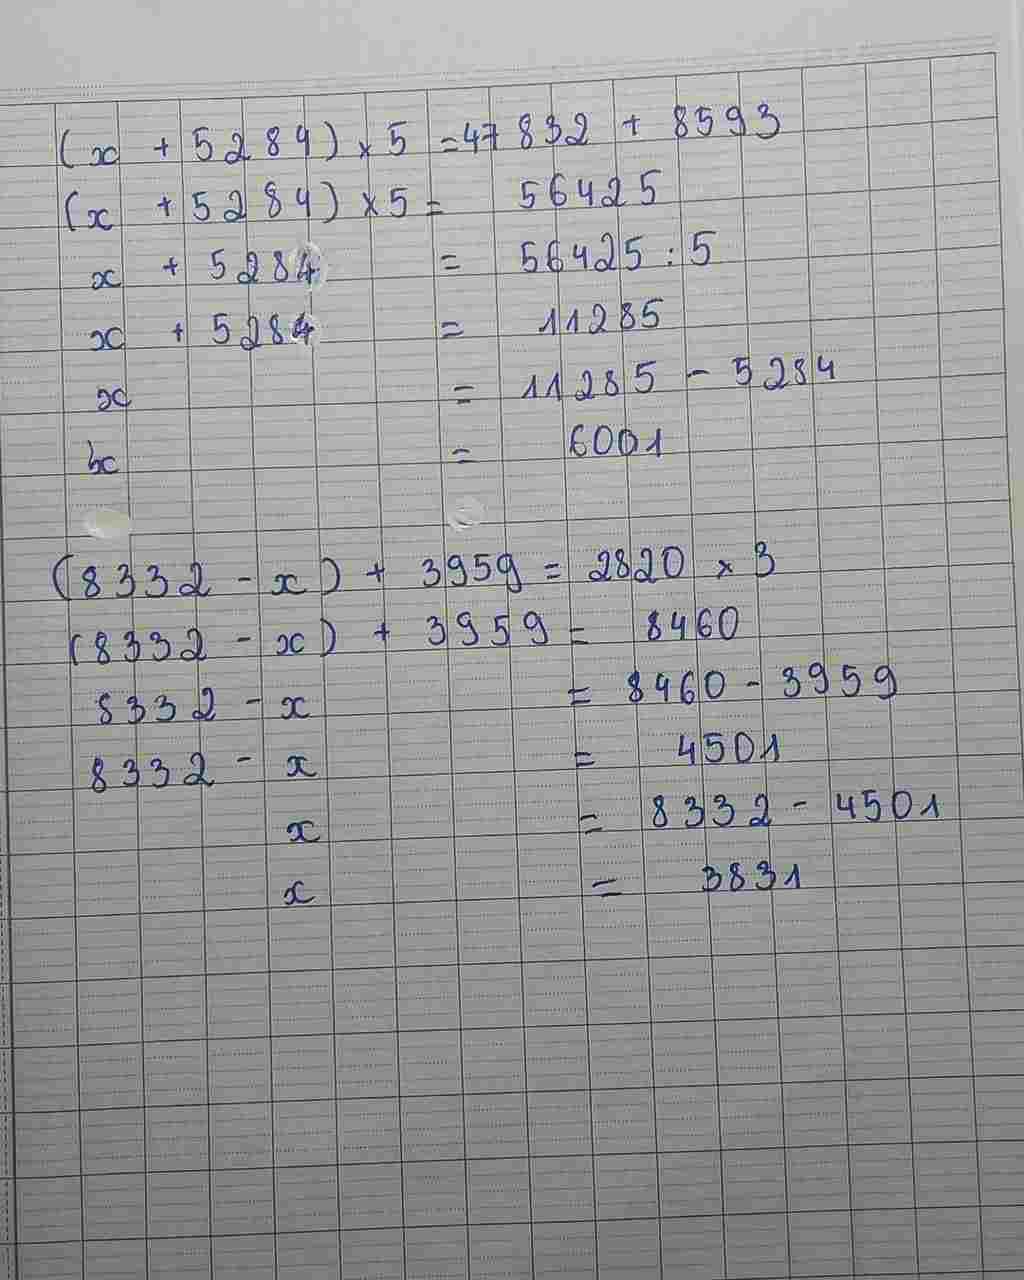 (x + 5284) × 5 = 47832 + 8593
(x + 5284) × 5 = 56425
x + 5284 = 56425 : 5
x + 5284 = 11285
x = 11285 - 5284
x = 6001
(8332 - x) + 3959 = 2820 × 3
(8332 - x) + 3959 = 8460
8332 - x = 8460 - 3959
8332 - x = 4501
x = 8332 - 4501
x = 3831